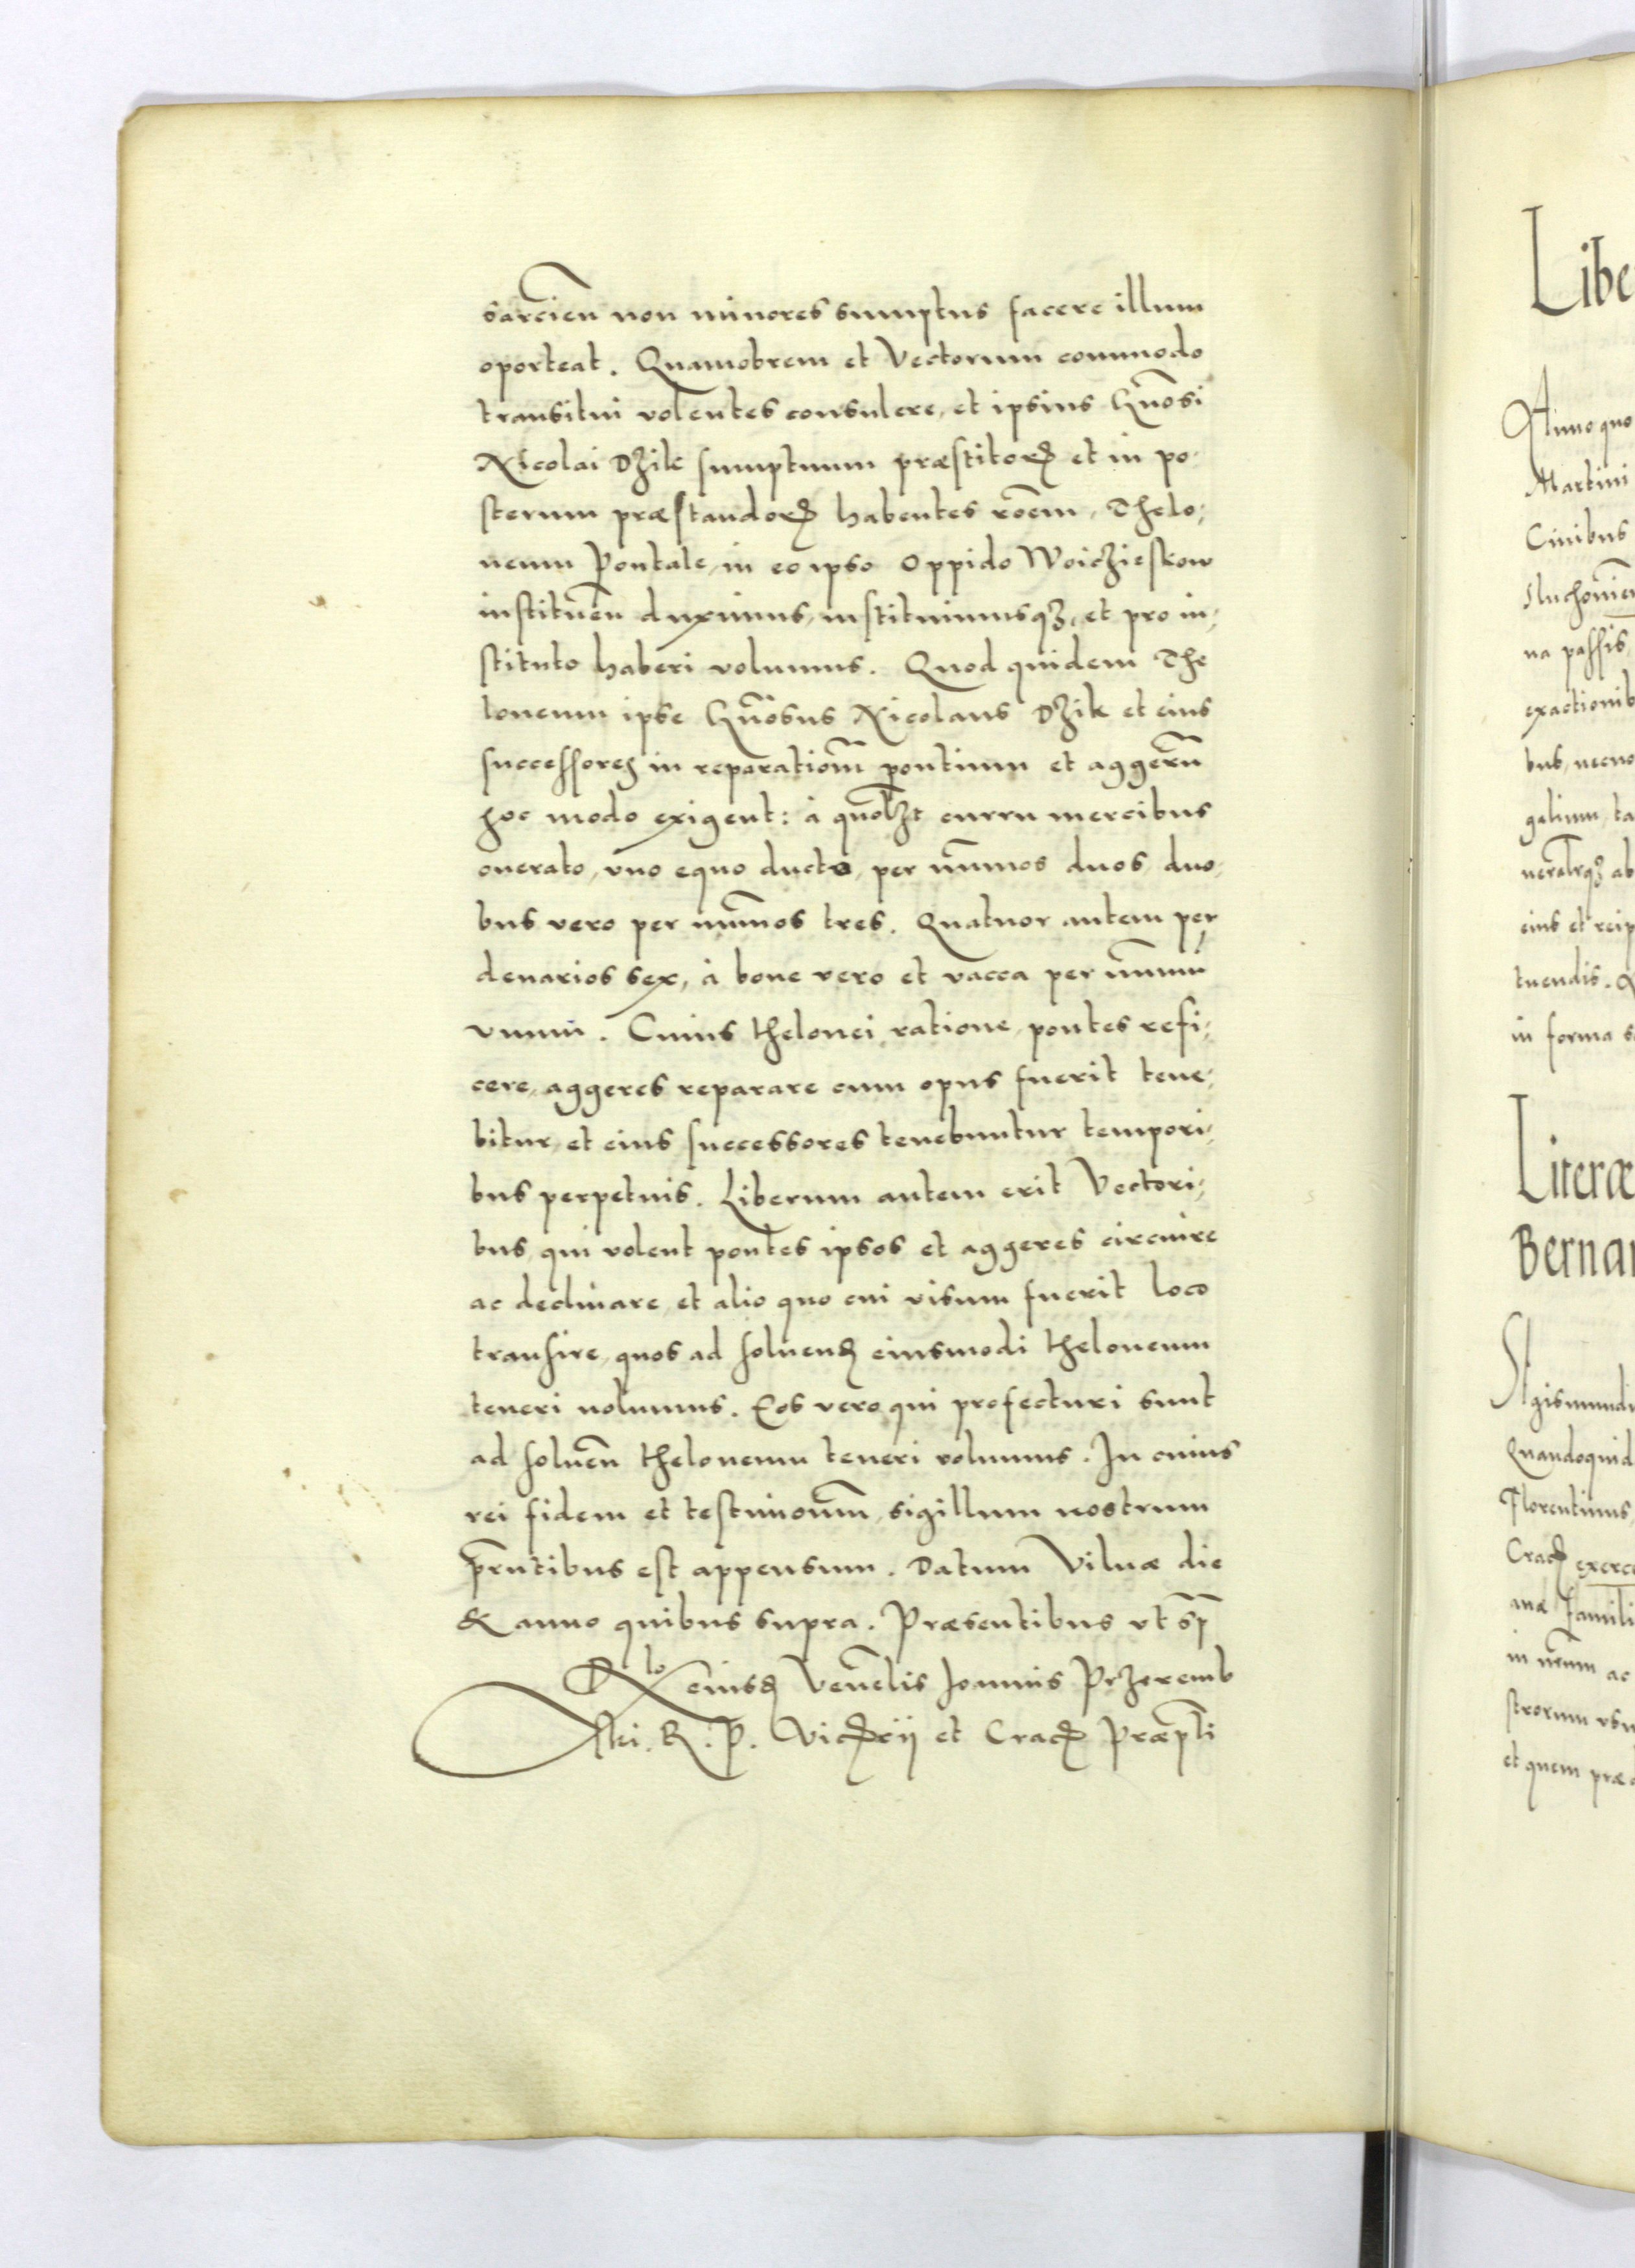 sarcien non minores sumptus facere illum
oporteat. Quamobrem et Vectorum commodo
transitui volentes consulere, et ipsius Gnosi
Nicolai Dzik sumptuum præstitorꝝ et in po-
sterum præstandorꝝ habentes roēm, Thelo-
neum Pontale, in eo ipso Oppido Woiczieskow
instituēn duximus, instituimusqꝫ, et pro in-
stituto haberi volumus. Quod quidem The
loneum ipse Gnōsus Nicolaus Dzik et eius
successores in reparationem pontium et aggerū
hoc modo exigent: à quolꝫt curru mercibus
onerato, vno equo ducto, per nūmos duos, duo-
bus vero per nūmos tres. Quatuor autem per
denarios sex, à boue vero et vacca per nūmū
vnum. Cuius thelonei ratione, pontes refi-
cere, aggeres reparare cum opus fuerit tene-
bitur, et eius successores tenebuntur tempori-
bus perpetuis. Liberum autem erit Vectori-
bus, qui volent pontes ipsos et aggeres circuire
ac declinare, et alio quo cui visum fuerit loco
transire, quos ad soluenđ eiusmodi theloneum
teneri nolumus. Eos vero qui profecturi sunt
ad soluēn theloneum teneri volumus. In cuius
rei fidem et testimoniū, sigillum nostrum
pr̄ntibus est appensum. Datum Vilnæ die
& anno quibus supra. Præsentibus vt sp̄
Rlo eiusđ Venelis Joannis Przeremb
ski. R. P. Vicecrij et Crac Præpti
Libe
Anno quo
Martini
Ciuibus
na passis
exactionib
bus, necno
galium, ta
eius et reip
tuendis. Q
in forma s
Literæ
Bernar
Sigismundu
Quandoquid
Florentinus,
Crac exerce
anæ Famili
in verum ac
strorum vsu
et quem præ